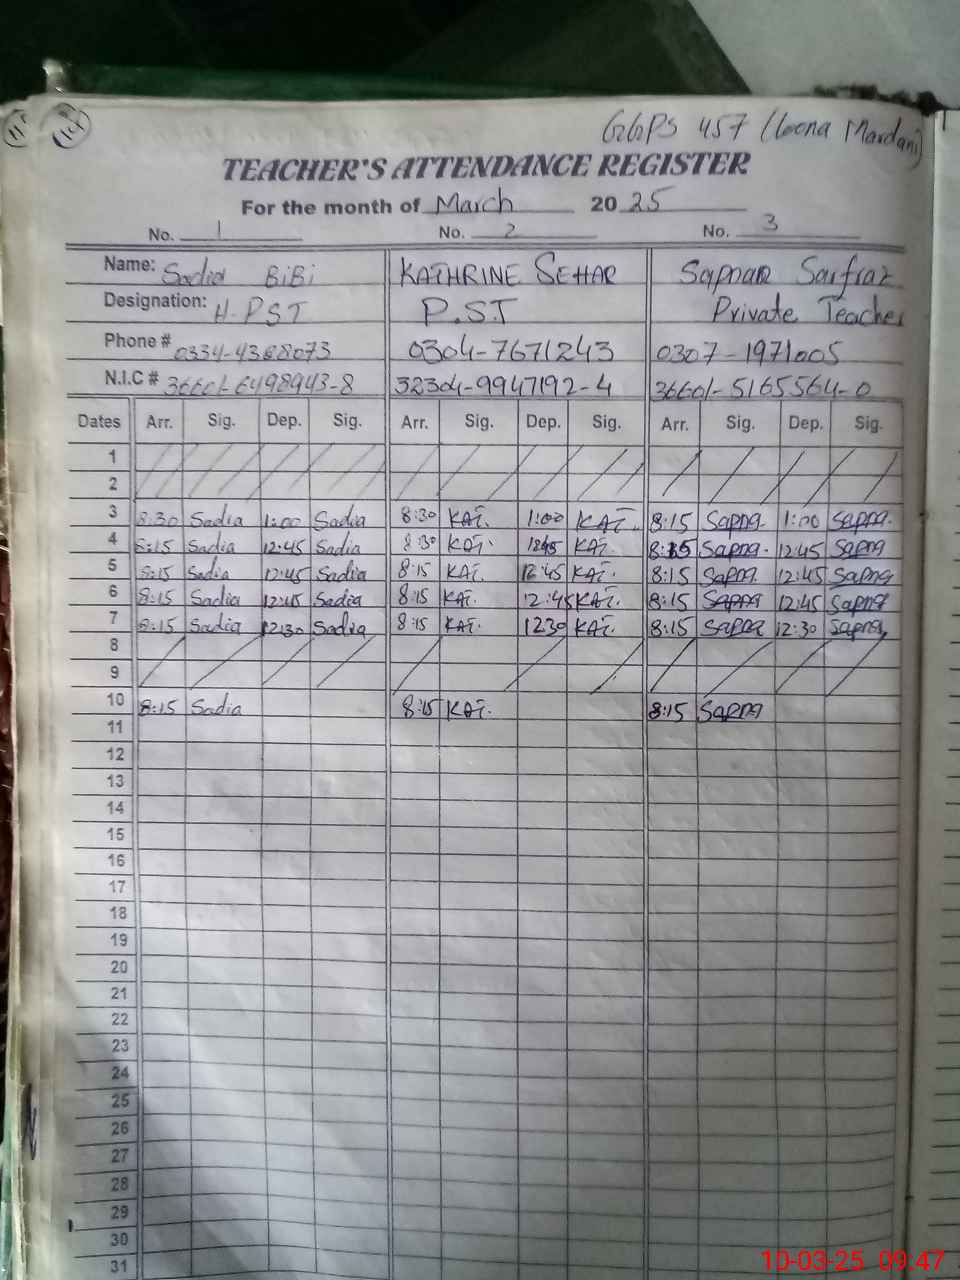 GGPS 457 (Loona Mardani)
TEACHER'S ATTENDANCE REGISTER
For the month of March 20 25
No. 1 No. 2 No. 3
Name: Sadia BiBi KATHRINE SEHAR Sapna Sarfraz
Designation: H-PST P.S.T Private Teacher
Phone # 0334-4368073 0304-7671243 0307-1971005
N.I.C # 36601-6498943-8 32304-9947192-4 36601-5165564-0
Dates Arr. Sig. Dep. Sig. Arr. Sig. Dep. Sig. Arr. Sig. Dep. Sig.
1
2
3 8:30 Sadia 1:00 Sadia 8:30 KAT. 1:00 KAT. 8:15 Sapna. 1:00 Sapna.
4 8:15 Sadia 12:45 Sadia 8:30 KAT. 12:45 KAT. 8:15 Sapna. 12:45 Sapna
5 8:15 Sadia 12:45 Sadia 8:15 KAT. 12:45 KAT. 8:15 Sapna. 12:45 Sapna
6 8:15 Sadia 12:45 Sadia 8:15 KAT. 12:45 KAT. 8:15 Sapna 12:45 Sapna
7 8:15 Sadia 12:30 Sadia 8:15 KAT. 12:30 KAT. 8:15 Sapna 12:30 Sapna
8
9
10 8:15 Sadia 8:15 KAT. 8:15 Sapna
11
12
13
14
15
16
17
18
19
20
21
22
23
24
25
26
27
28
29
30
31
10-03-25 09:47